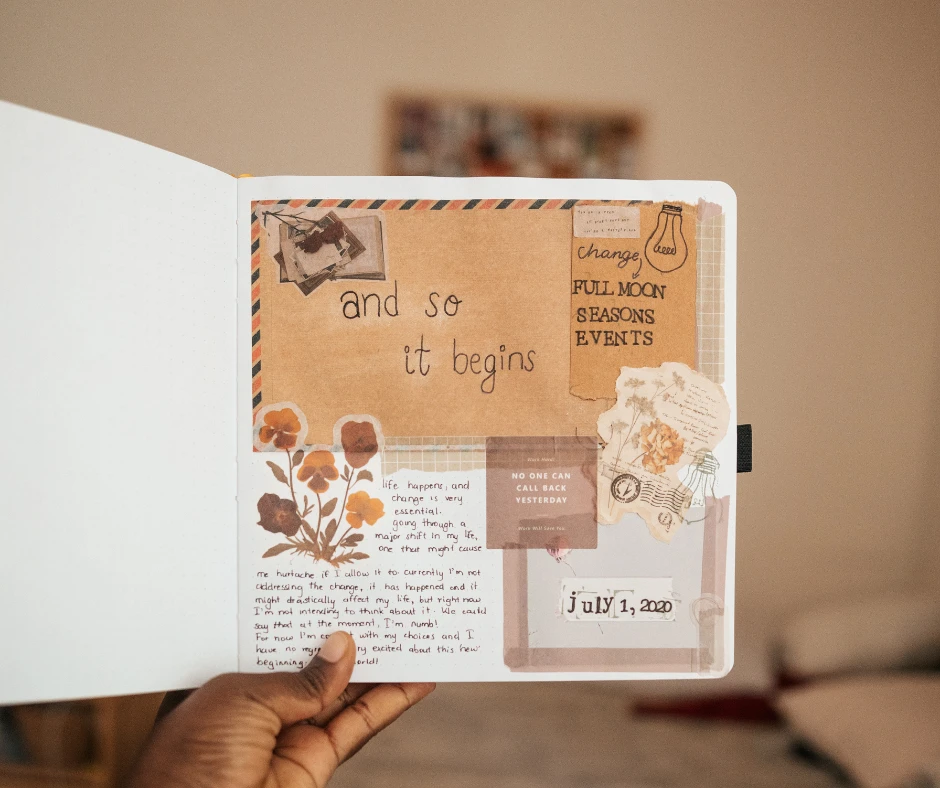 and so
it begins
change,
FULL MOON
SEASONS
EVENTS
NO ONE CAN
CALL BACK
YESTERDAY
Work Will Save You.
life happens, and
change is very
essential.
going through a
major shift in my life,
one that might cause
me hurtache if I allow it to currently I'm not
addressing the change, it has happened and it
might drastically affect my life, but right now
I'm not intending to think about it. We could
say that at the moment, I'm numb!
For now I'm with my choices and I
have no excited about this new
beginning
july 1, 2020